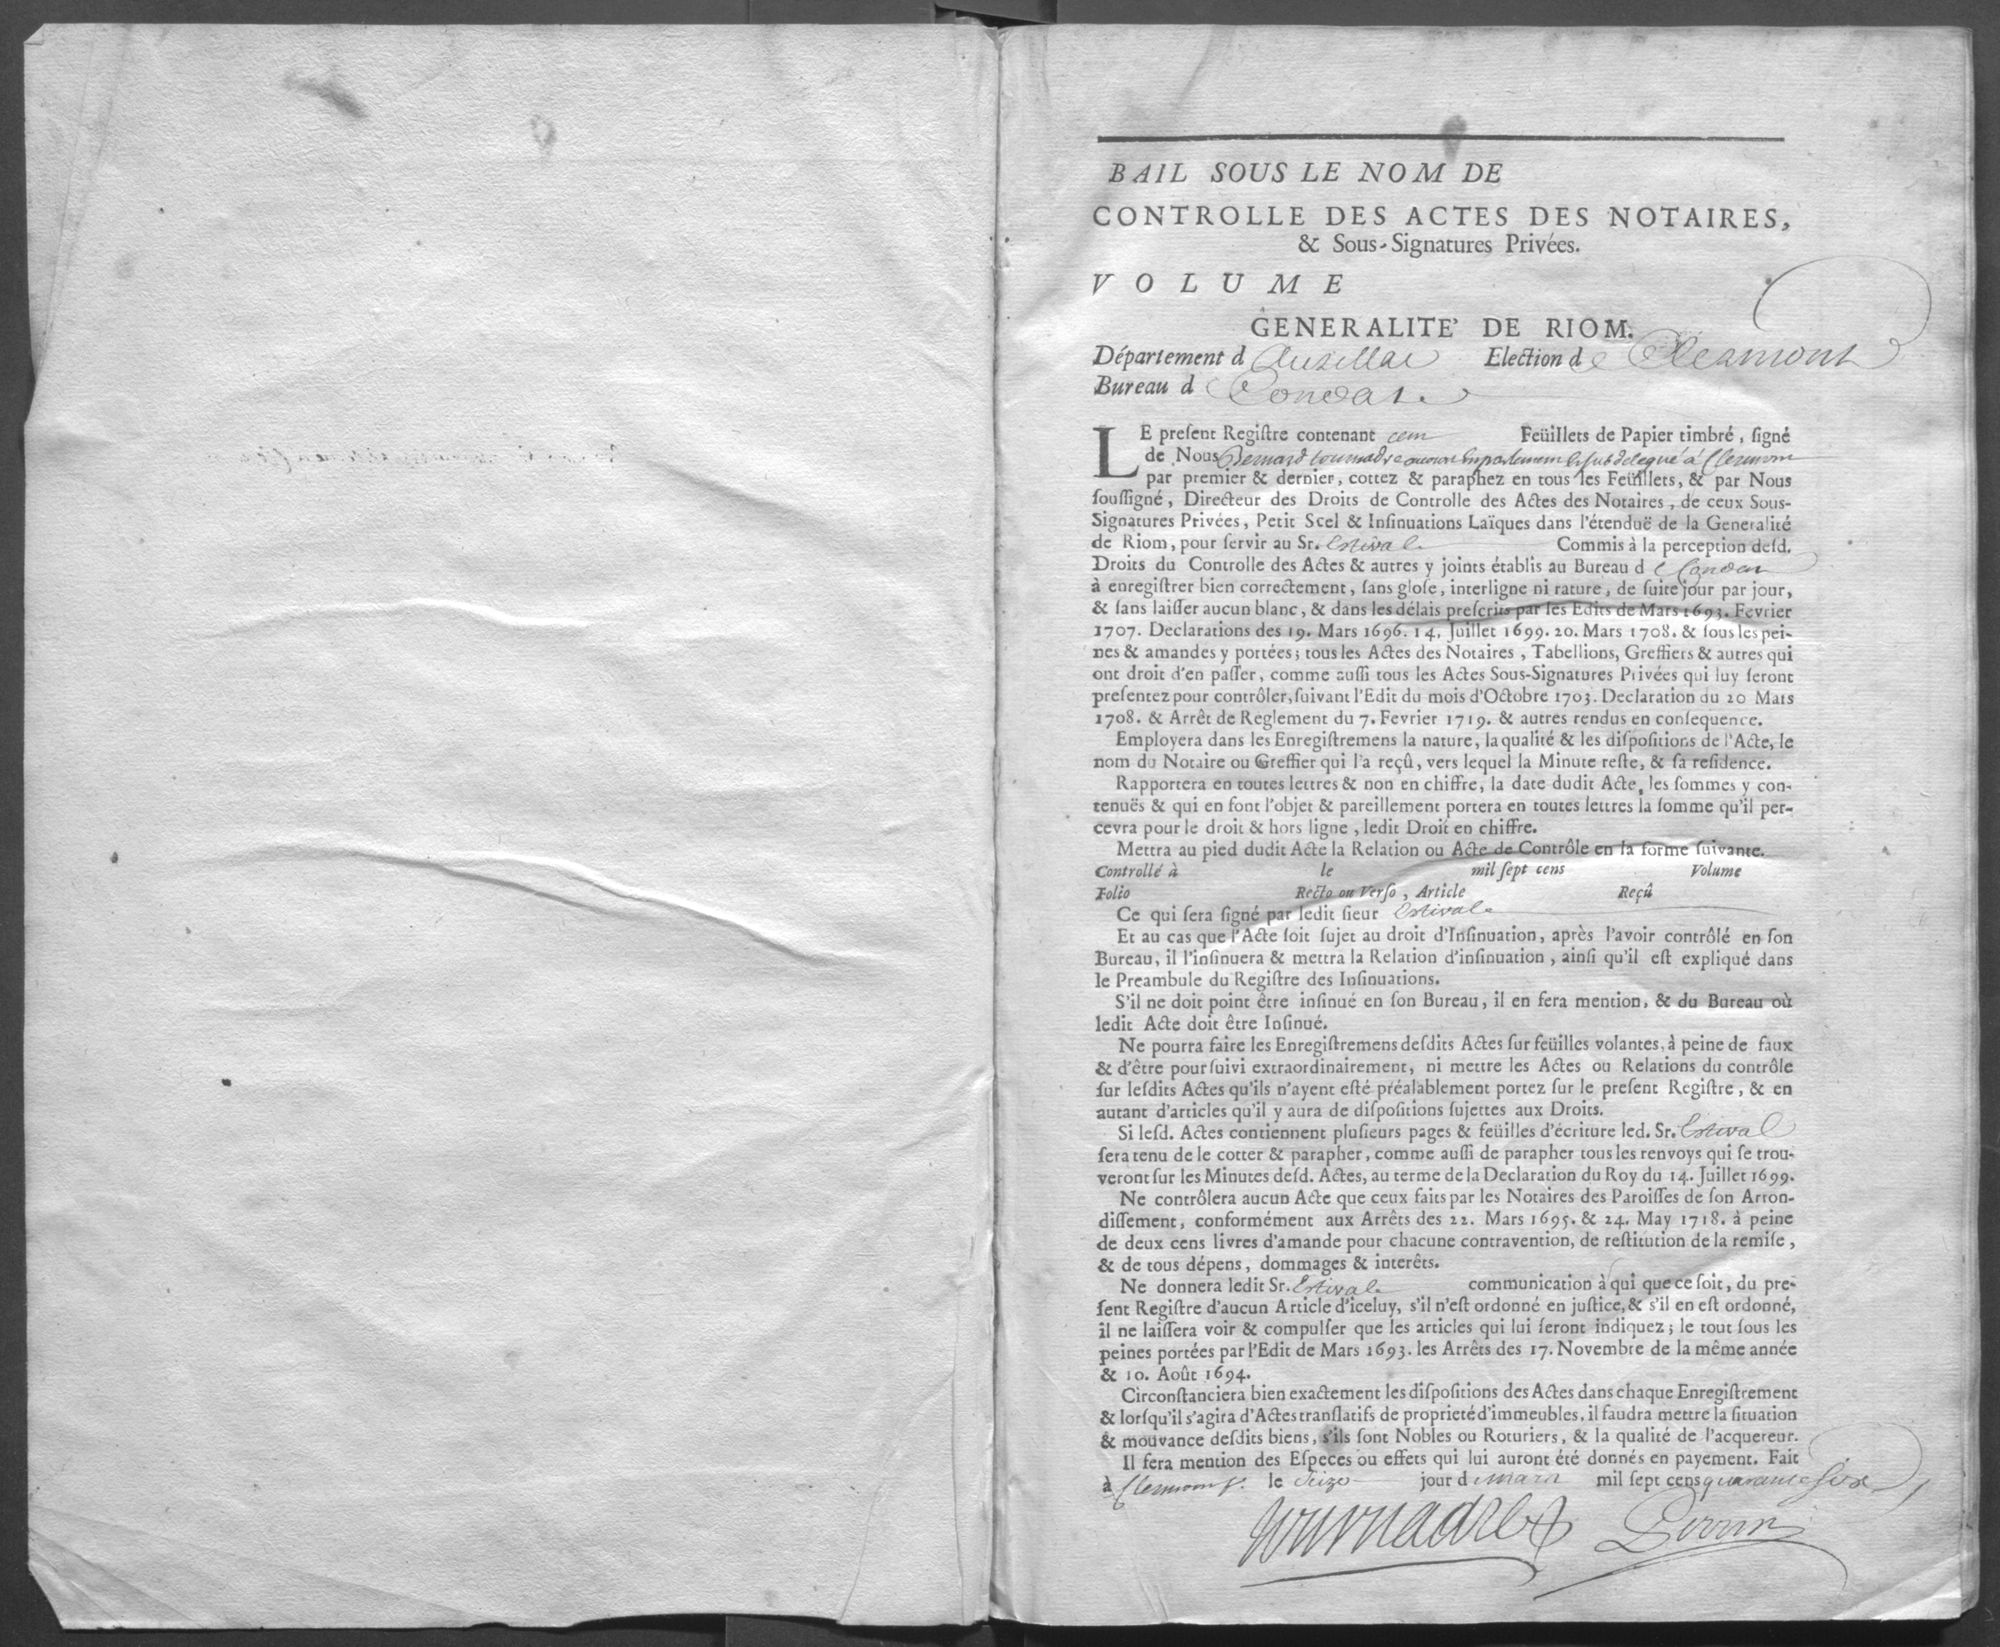 BAIL SOUS LE NOM DE
CONTROLLE DES ACTES DES NOTAIRES,
& Sous-Signatures Privées.
VOLUME
GENERALITE' DE RIOM.
Département d'Aurillac Election de Clermont
Bureau de Condat
LE preſent Regiſtre contenant cent Feüillets de Papier timbré, ſigné
de Nous Bernard tournadre avocat en parlement & subdelegué a Clermont
par premier & dernier, cottez & paraphez en tous les Feüillets, & par Nous
ſouſſigné, Directeur des Droits de Controlle des Actes des Notaires, de ceux Sous-
Signatures Privées, Petit Scel & Inſinuations Laïques dans l'étenduë de la Generalité
de Riom, pour ſervir au Sr. Estival Commis à la perception deſd.
Droits du Controlle des Actes & autres y joints établis au Bureau de Condat
à enregiſtrer bien correctement, ſans gloſe, interligne ni rature, de ſuite jour par jour,
& ſans laiſſer aucun blanc, & dans les délais preſcrits par les Edits de Mars 1693. Fevrier
1707. Declarations des 19. Mars 1696. 14. Juillet 1699. 20. Mars 1708. & ſous les pei-
nes & amandes y portées; tous les Actes des Notaires, Tabellions, Greffiers & autres qui
ont droit d'en paſſer, comme auſſi tous les Actes Sous-Signatures Privées qui luy ſeront
preſentez pour contrôler, ſuivant l'Edit du mois d'Octobre 1703. Declaration du 20 Mars
1708. & Arrêt de Reglement du 7. Fevrier 1719. & autres rendus en conſequence.
Employera dans les Enregiſtremens la nature, la qualité & les diſpoſitions de l'Acte, le
nom du Notaire ou Greffier qui l'a reçû, vers lequel la Minute reſte, & ſa reſidence.
Rapportera en toutes lettres & non en chiffre, la date dudit Acte, les ſommes y con-
tenuës & qui en font l'objet & pareillement portera en toutes lettres la ſomme qu'il per-
cevra pour le droit & hors ligne, ledit Droit en chiffre.
Mettra au pied dudit Acte la Relation ou Acte de Contrôle en la forme ſuivante.
Controllé à le mil ſept cens Volume
Folio Recto ou Verſo, Article Reçû
Ce qui ſera ſigné par ledit ſieur Estival
Et au cas que l'Acte ſoit ſujet au droit d'Inſinuation, après l'avoir contrôlé en ſon
Bureau, il l'inſinuera & mettra la Relation d'inſinuation, ainſi qu'il eſt expliqué dans
le Preambule du Regiſtre des Inſinuations.
S'il ne doit point être inſinué en ſon Bureau, il en fera mention, & du Bureau où
ledit Acte doit être Inſinué.
Ne pourra faire les Enregiſtremens deſdits Actes ſur feüilles volantes, à peine de faux
& d'être pourſuivi extraordinairement, ni mettre les Actes ou Relations du contrôle
ſur leſdits Actes qu'ils n'ayent eſté préalablement portez ſur le preſent Regiſtre, & en
autant d'articles qu'il y aura de diſpoſitions ſujettes aux Droits.
Si leſd. Actes contiennent pluſieurs pages & feüilles d'écriture led. Sr. Estival
ſera tenu de le cotter & parapher, comme auſſi de parapher tous les renvoys qui ſe trou-
veront ſur les Minutes deſd. Actes, au terme de la Declaration du Roy du 14. Juillet 1699.
Ne contrôlera aucun Acte que ceux faits par les Notaires des Paroiſſes de ſon Arron-
diſſement, conformément aux Arrêts des 22. Mars 1695. & 24. May 1718. à peine
de deux cens livres d'amande pour chacune contravention, de reſtitution de la remiſe,
& de tous dépens, dommages & interêts.
Ne donnera ledit Sr. Estival communication à qui que ce ſoit, du pre-
ſent Regiſtre d'aucun Article d'iceluy, s'il n'eſt ordonné en juſtice, & s'il en eſt ordonné,
il ne laiſſera voir & compulſer que les articles qui lui ſeront indiquez; le tout ſous les
peines portées par l'Edit de Mars 1693. les Arrêts des 17. Novembre de la même année
& 10. Août 1694.
Circonſtanciera bien exactement les diſpoſitions des Actes dans chaque Enregiſtrement
& lorſqu'il s'agira d'Actes tranſlatifs de proprieté d'immeubles, il faudra mettre la ſituation
& mouvance deſdits biens, s'ils ſont Nobles ou Roturiers, & la qualité de l'acquereur.
Il fera mention des Eſpeces ou effets qui lui auront été donnés en payement. Fait
à Clermont le Seize jour de mars mil ſept cens quarante six
tournadre